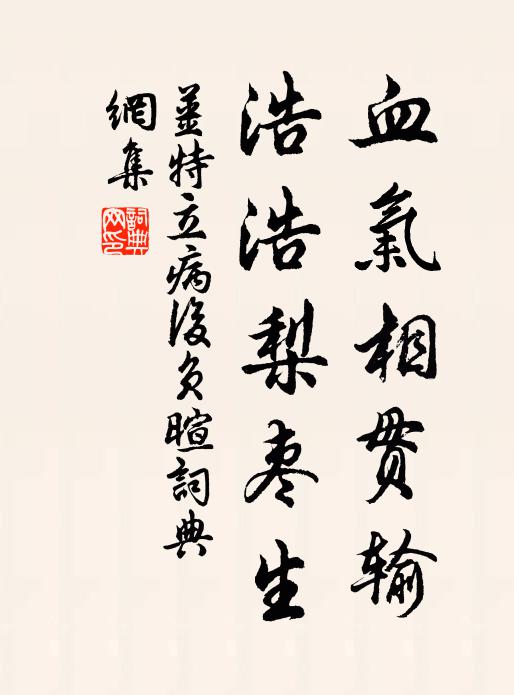 血氣相貫输
浩浩梨枣生
姜特立病後負暄詞典
網集
詞典網印